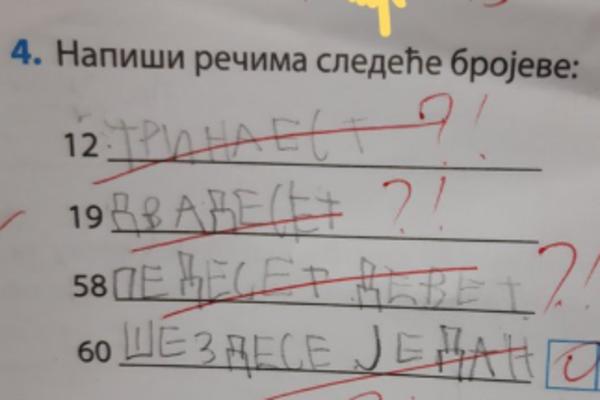 4. Напиши речима следеће бројеве:
12 ТРИНАЕСТ ?!
19 ДВАДЕСЕТ ?!
58 ПЕДЕСЕТ ДЕВЕТ ?!
60 ШЕЗДЕСЕ ЈЕДАН